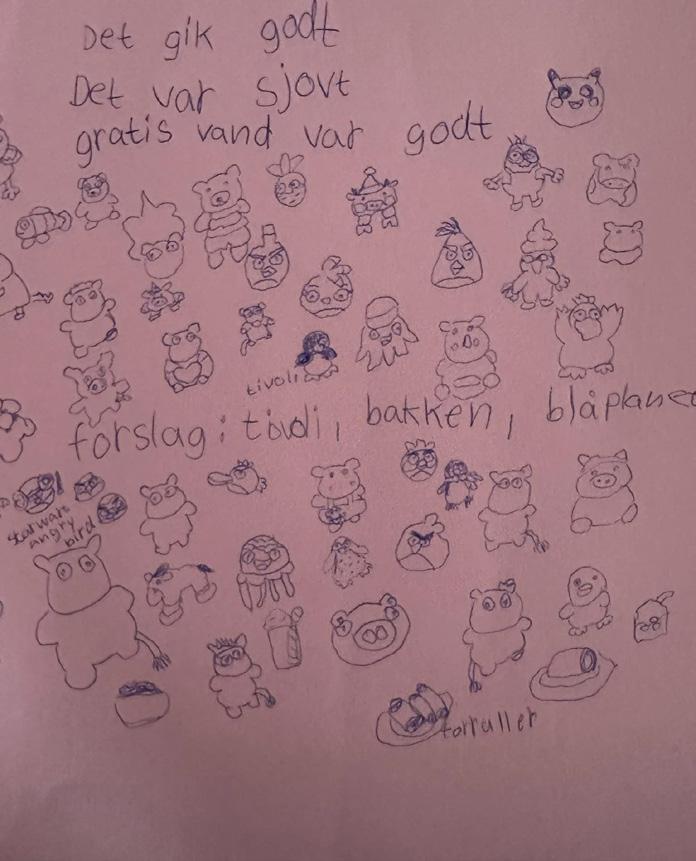 Det gik godt
Det var sjovt
gratis vand var godt
tivoli
forslag: tivoli, bakken, blåplanet
starwars
angry
bird
forruller